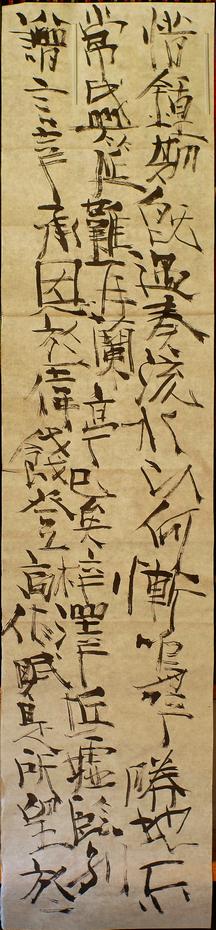 惜鍾期既遇奏流水以何慚嗚呼勝地不
常盛筵難再蘭亭已矣梓澤丘墟臨別
贈言幸承恩於偉餞登高作賦是所望於